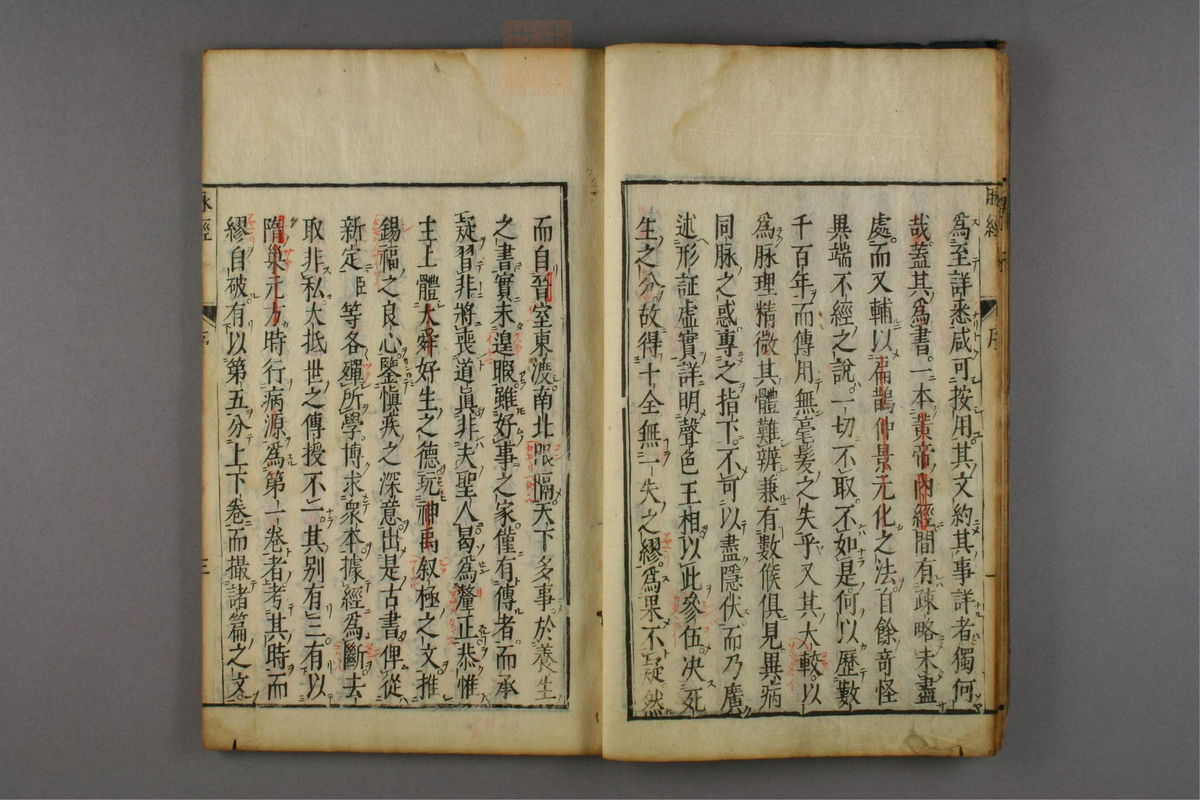 爲至詳悉咸可按用其文約其事詳者獨何
哉蓋其爲書一本黄帝内經間有疎略未盡
處而又輔以扁鵲仲景元化之法自餘奇怪
異端不經之說一切不取不如是何以歷數
千百年而傳用無毫髮之失乎又其大較以
爲脉理精微其體難辨兼有數候俱見異病
同脉之惑專之指下不可以盡隱伏而乃廣
述形証虚實詳明聲色王相以此參伍决死
生之分故得十全無一失之繆爲果不疑然
脉經
序
而自晉室東渡南北限隔天下多事於養生
之書實未遑暇雖好事之家僅有傳者而承
疑習非將喪道眞非夫聖人曷爲釐正恭惟
主上體大舜好生之德玩神禹叙極之文推
錫福之良心鑒愼疾之深意出是古書俾從
新定臣等各殫所學博求衆本據經爲斷去
取非私大抵世之傳授不一其别有三有以
隋巢元方時行病源爲第一卷者考其時而
繆自破有以第五分上下卷而撮諸篇之文
脉經
序
三